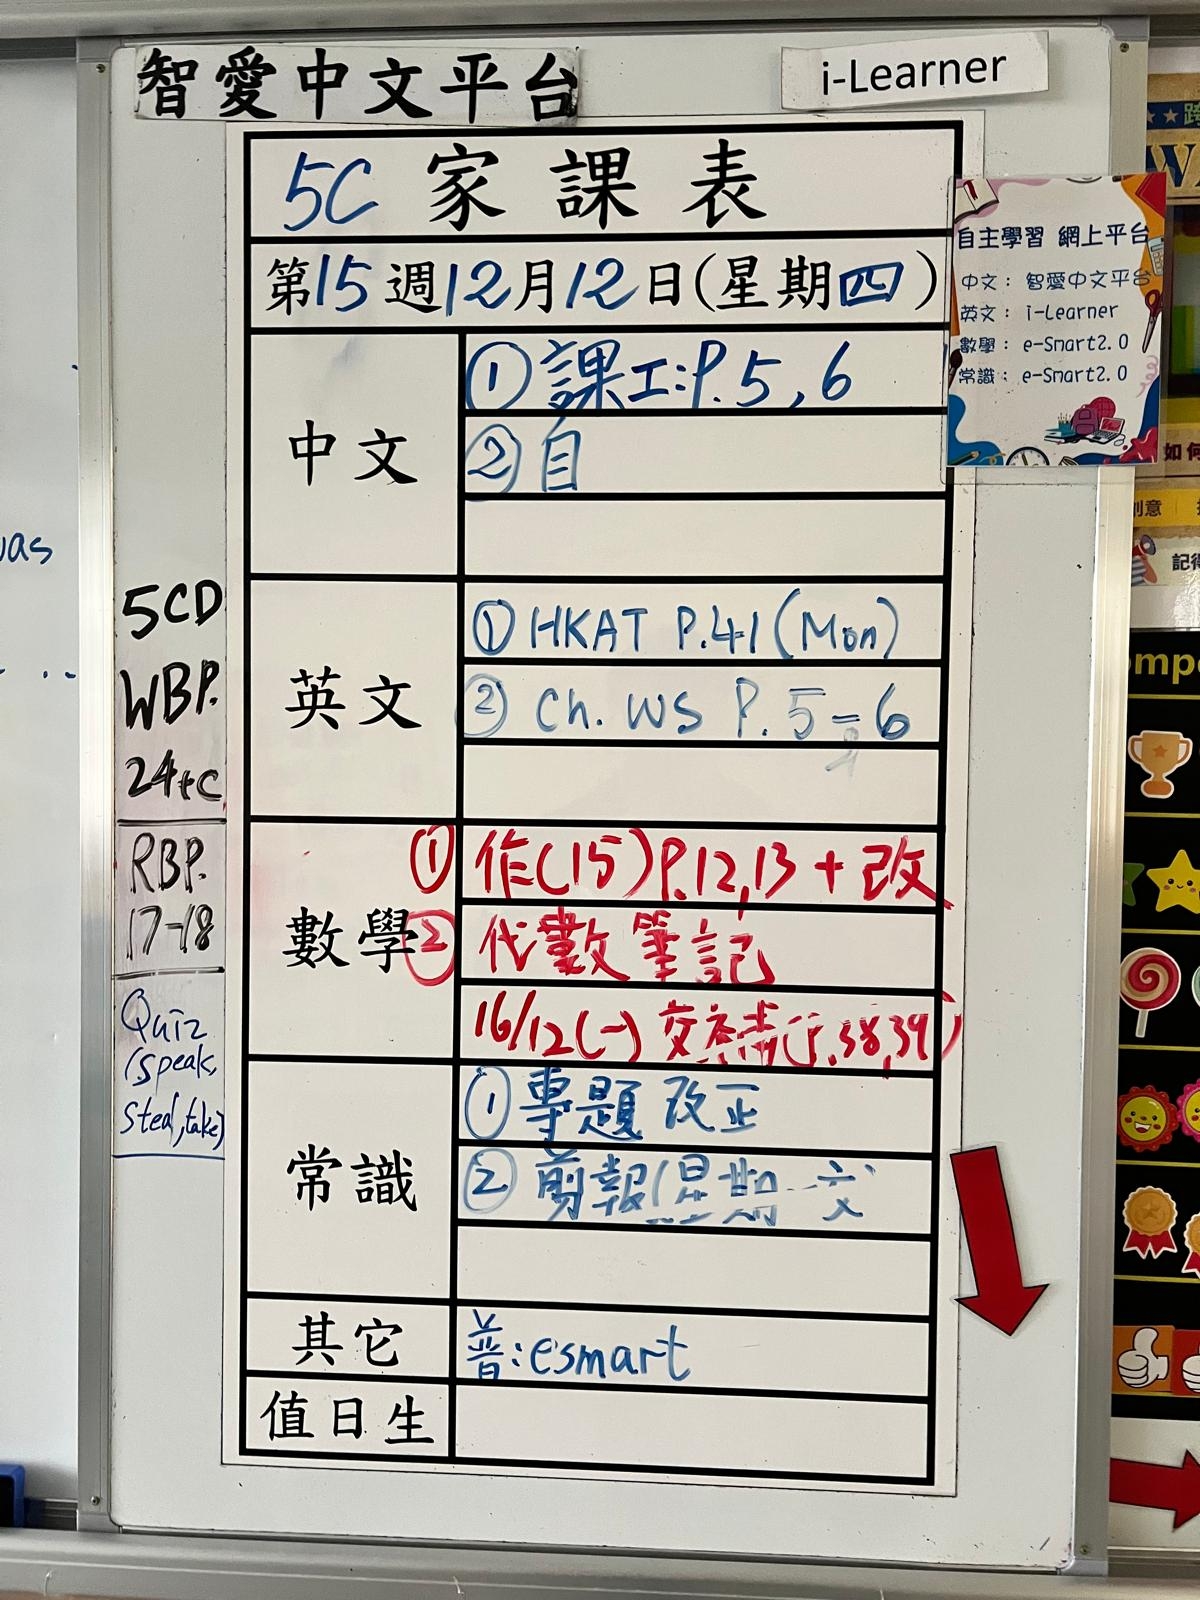 智愛中文平台
i-Learner
5C 家課表
第15週12月12日(星期四)
自主學習 網上平台
中文：智愛中文平台
英文：i-Learner
數學：e-Smart2.0
常識：e-Smart2.0
中文
① 課工:P.5,6
② 自
英文
① HKAT P.41 (Mon)
② Ch. WS P.5-6
數學
① 作(15)P.12,13 + 改
② 代數筆記
16/12(一) 交
38,39)
常識
① 專題 改正
② 剪報(星期一交
其它
普:esmart
值日生
5CD
WBP.
24+c
RBP.
17-18
Quiz
(speak,
steal,take)
was
如何
創意
記得